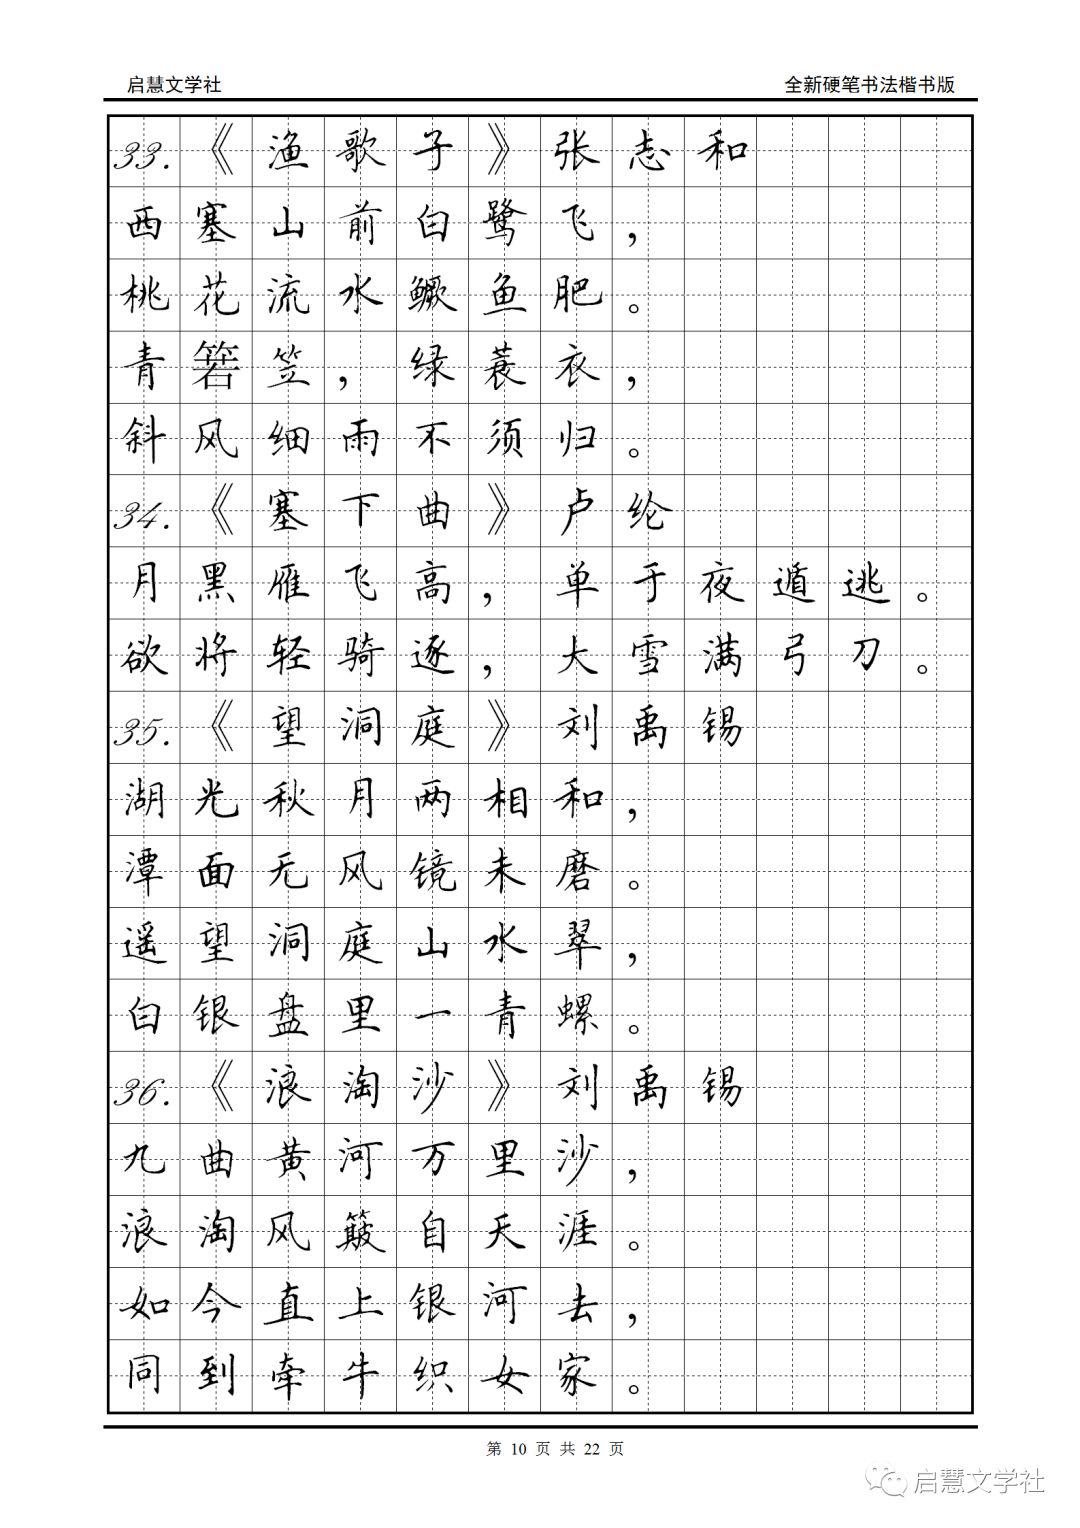 启慧文学社 全新硬笔书法楷书版
33.《渔歌子》张志和
西塞山前白鹭飞，
桃花流水鳜鱼肥。
青箬笠，绿蓑衣，
斜风细雨不须归。
34.《塞下曲》卢纶
月黑雁飞高，单于夜遁逃。
欲将轻骑逐，大雪满弓刀。
35.《望洞庭》刘禹锡
湖光秋月两相和，
潭面无风镜未磨。
遥望洞庭山水翠，
白银盘里一青螺。
36.《浪淘沙》刘禹锡
九曲黄河万里沙，
浪淘风簸自天涯。
如今直上银河去，
同到牵牛织女家。
第 10 页 共 22 页
启慧文学社